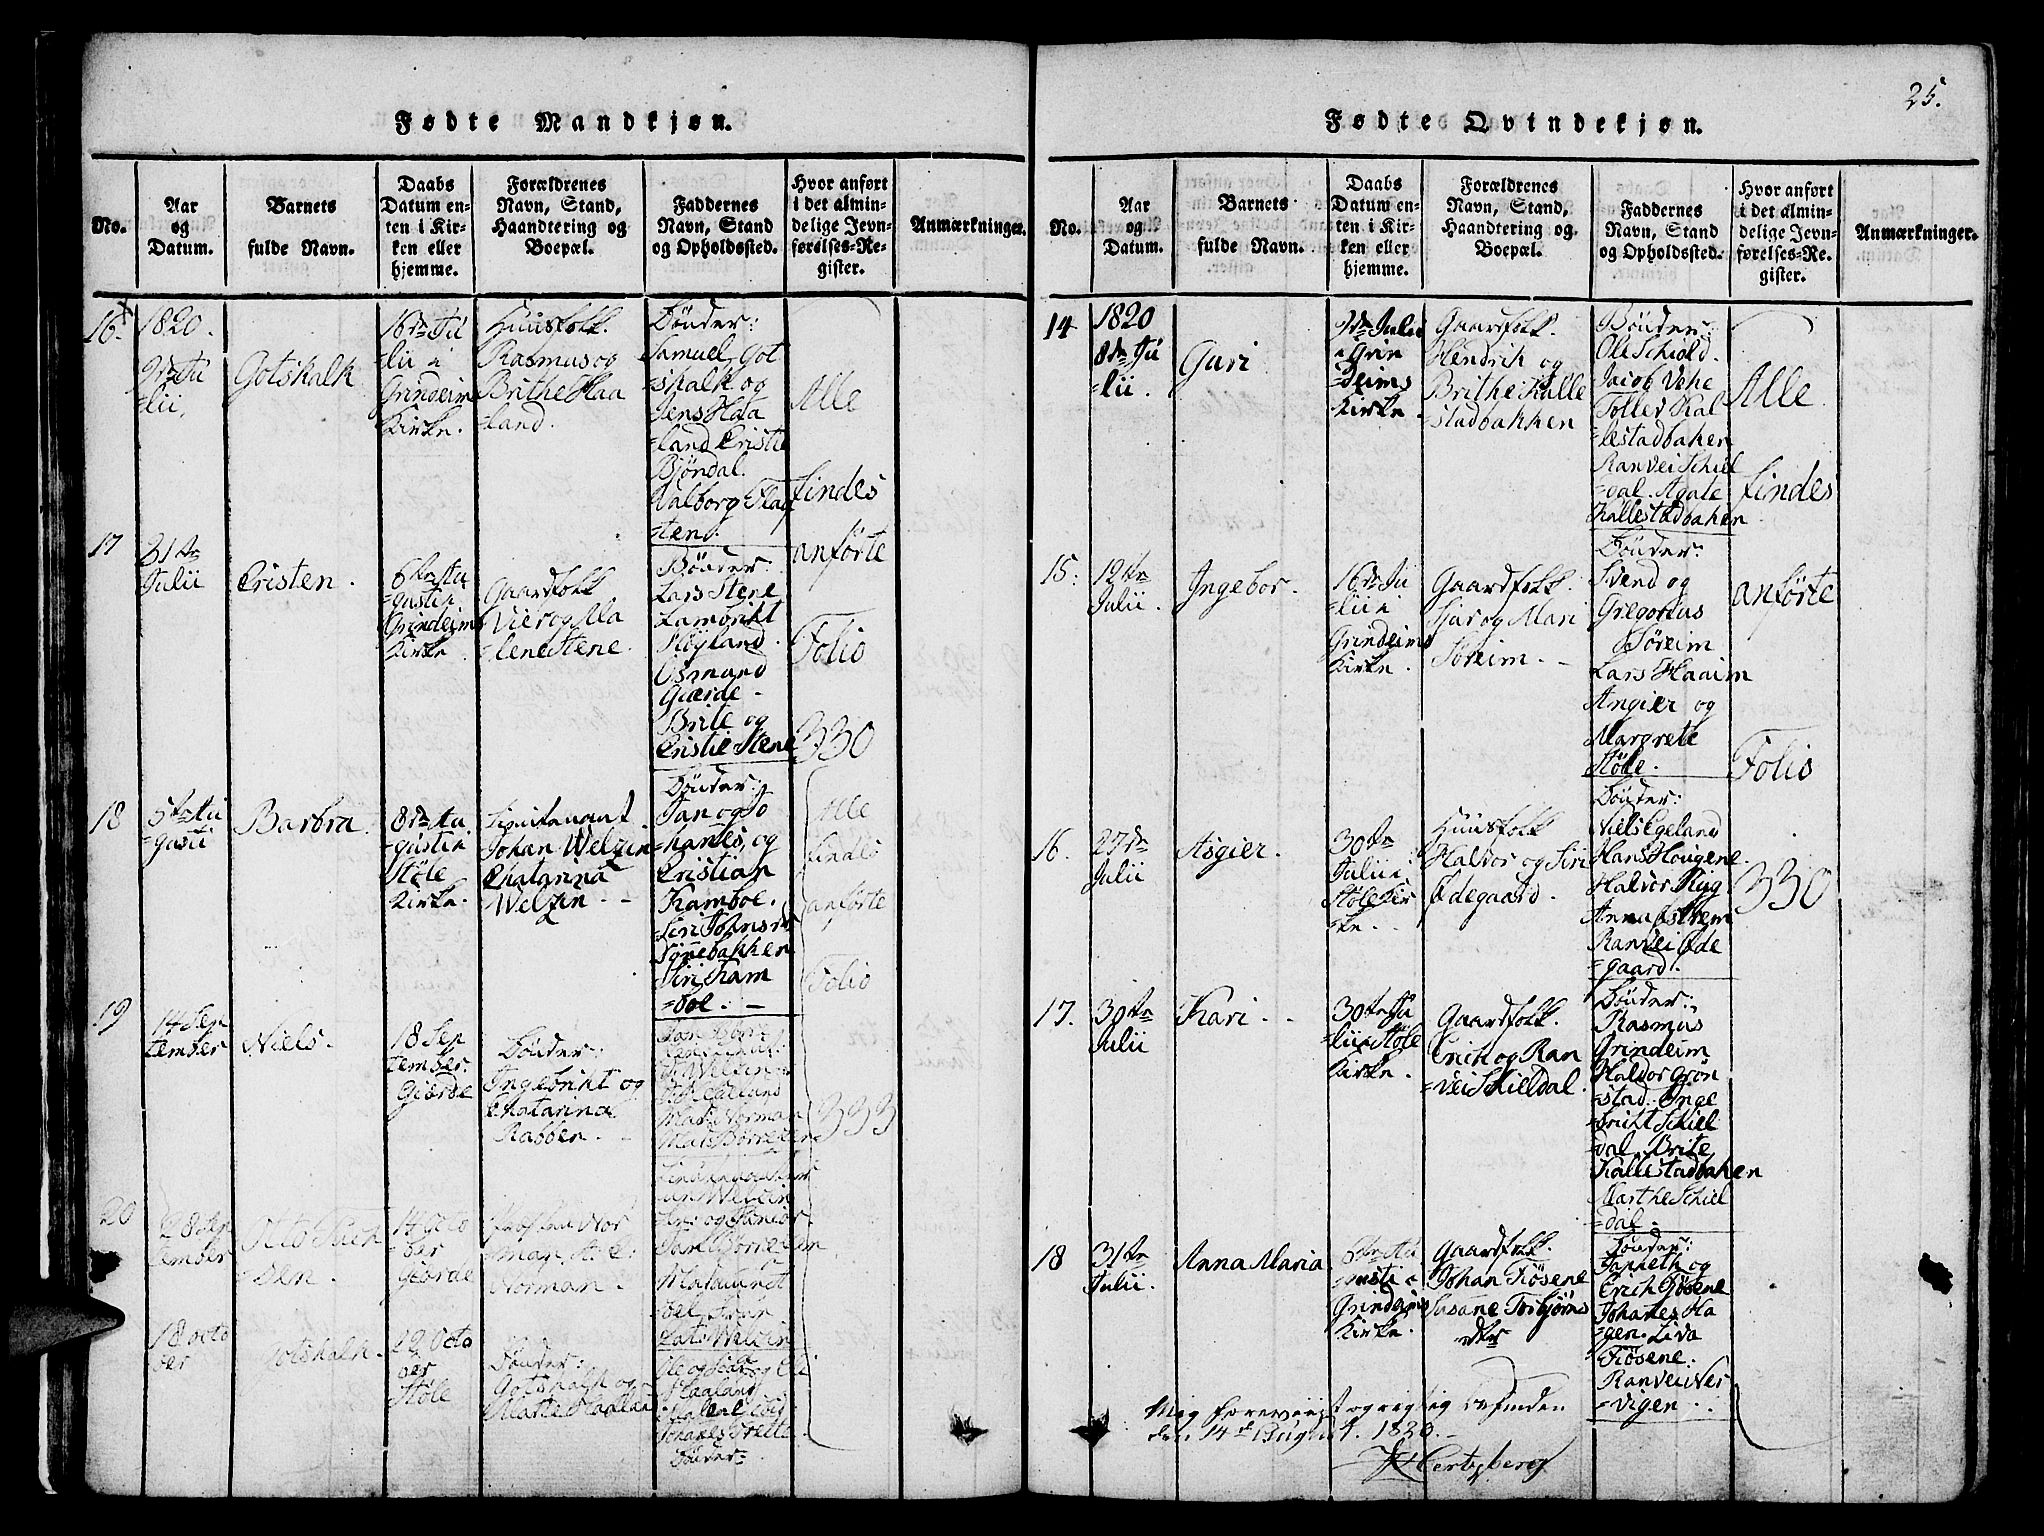 25.
Fødte Mandkjøn.
No.
Aar
og
Datum.
Barnets
fulde Navn.
Daabs
Datum en-
ten i Kir-
ken eller
hjemme.
Forældrenes
Navn, Stand,
Haandtering og
Boepæl.
Faddernes
Navn, Stand
og Opholdssted.
Hvor anført
i det almin-
delige Jevn-
førelses-Re-
gister.
Anmærkninger.
16.
1820.
9de Ju
=lii,
Gotskalk
16de Ju
=lii i
Grindeim
Kirke.
Huusfolk.
Rasmus og
Brithe Haa
=land.
Bønder:
Samuel, Got
=skalk og
Jens Haa
=land Cristie
Bjøndal.
Valborg Flad
=ten.
Alle
findes
anførte
Folio
330
17
31te
Julii
Cristen.
6te Au
=gusti i
Grindeim
Kirke.
Gaardfolk
Vier og Ma
=lene Stene.
Bønder.
Lars Stene
Lambrikt
Høyland.
Osmund
Gierde.
Brite og
Cristie Stene
18
5te Au
=gusti
Barbra.
8de Au
=gusti i
Støle
Kirke.
Lieutenant
Johan Welzin
Chatarina
Welzin.
Bønder:
Jan og Jo
=hanes, og
Cristian
Kamboe.
Siri Johnsdr
Tønebakken
Siri Kam
=boe.
Alle
findes
anførte
Folio
333
19
14 Sep
tember
Niels.
18 Sep
tember.
Gierde
Bønder:
Ingebrikt og
Chatarina
Rabben.
20
28 Sep
tember
Otto
14 Octo
=ber
Gierde
Norman.
18 Octo
ber
Gotskalk.
29 Octo
ber
Støle
Bønder:
Gotskalk og
Marte Haaland
Haaland
Johanes Trette
Bønder
Fødte Qvindekjøn.
No.
Aar
og
Datum.
Barnets
fulde Navn.
Daabs
Datum en-
ten i Kir-
ken eller
hjemme.
Forældrenes
Navn, Stand,
Haandtering og
Boepæl.
Faddernes
Navn, Stand
og Opholdssted.
Hvor anført
i det almin-
delige Jevn-
førelses-Re-
gister.
Anmærkninger.
14
1820
8de Ju
=lii.
Guri
9de Julii
i Grin
=deims
Kirke.
Gaardfolk.
Hendrik og
Brithe Kalle
=stadbakken
Bønder:
Ole Schiold.
Jacob Vohe
Tollev Kal
=lestadbaken
Ranvei Schiel
=dal. Agate
Kallestadbaken
Alle
findes
anførte
Folio
330
15.
12te
Julii.
Ingebor.
16de Ju
=lii i
Grindeims
Kirke.
Gaardfolk.
Sjur og Mari
Søreim.
Bønder:
Svend og
Gregorius
Søreim
Lars Haaim
Angier og
Margrete
Støle.
16.
27de
Julii
Asgier.
30te
Julii i
Støle Kir
=ke.
Huusfolk
Halvor og Siri
Ødegaard.
Bønder:
Niels Egeland
Hans Hougene.
Halvor Ryg
Anna Østrem
Ranvei Øde
=gaard.
17.
30te
Julii
Kari.
30te Ju
=lii i Støle
Kirke.
Gaardfolk.
Erich og Ran
=vei Schieldal.
Bønder:
Rasmus
Grindeim
Haldor Grøn
=stad. Inge
=brikt Schiel
dal. Brite
Kallestadbaken
Marthe Schiel
=dal.
18
31te
Julii.
Anna Maria
6te Au
=gusti i
Grindeims
Kirke.
Gaardfolk.
Johan Fiøsene
Susane Torbjørns
dtr
Bønder:
Janneth og
Erich Fiøsene
Johanes Ha
=gen. Liva
Fiøsene.
Ranvei Ner
=vigen.
Mig foreviist og rigtig befunden
den 14de August. 1820.
Hertzberg